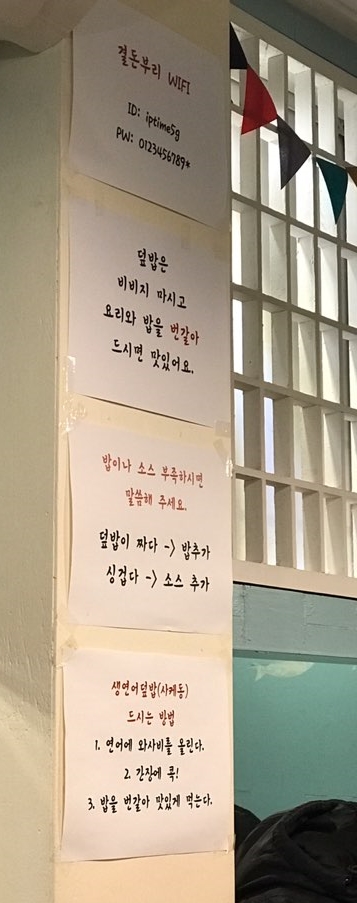 결돈부리 WIFI
ID: iptime5g
PW: 0123456789*
덮밥은
비비지 마시고
요리와 밥을 번갈아
드시면 맛있어요.
밥이나 소스 부족하시면
말씀해 주세요.
덮밥이 짜다 -> 밥추가
싱겁다 -> 소스 추가
생연어덮밥(사케동)
드시는 방법
1. 연어에 와사비를 올린다.
2. 간장에 콕!
3. 밥을 번갈아 맛있게 먹는다.